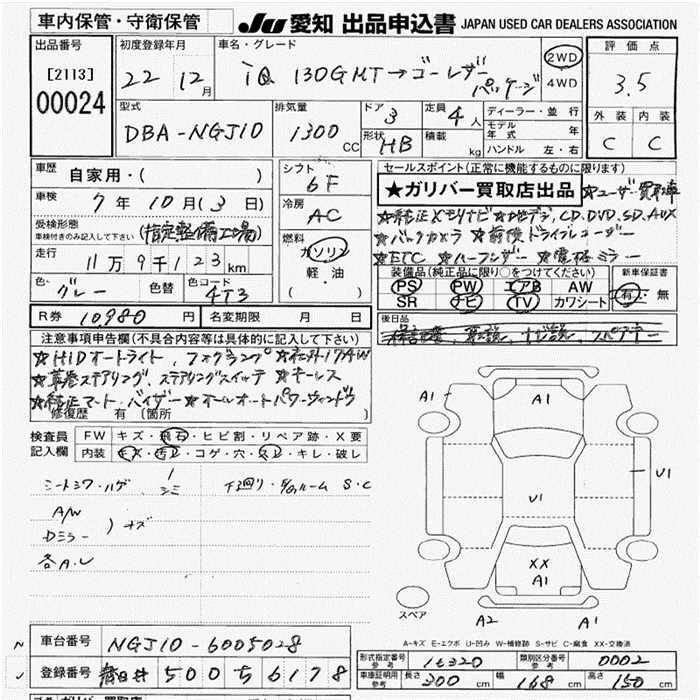 車内保管・守衛保管
JU 愛知 出品申込書 JAPAN USED CAR DEALERS ASSOCIATION
出品番号
[2113]
00024
初度登録年月
22 12月
車名・グレード
iQ 130GMT→ゴーレザーパッケージ
2WD
4WD
評価点
3.5
外装 内装
C C
型式
DBA-NGJ10
排気量
1300 CC
ドア
3
形状
HB
定員
4人
積載
kg
ディーラー・並行
モデル年式 年
ハンドル 左・右
車歴
自家用・( )
車検
7年10月(3日)
受検形態
車検付きのみ記入して下さい
(指定整備工場)
走行
11万9千123km
色
グレー
色替
色コード
4T3
シフト
6F
冷房
AC
燃料
ガソリン
軽・油
( )
セールスポイント(正常に機能するものに限ります)
★ガリバー買取店出品
★ユーザー買取車
★純正メモリナビ ★地デジ, CD, DVD, SD, AUX
★バックカメラ ★前後ドライブレコーダー
★ETC ★ハーフレザー ★電格ミラー
装備品(純正品に限り○をつけてください)
PS PW エアB AW
SR ナビ TV カワシート
新車保証書
有・無
R券 10980円
名変期限 月 日
後日品
注意事項申告欄(不具合内容等は具体的に記入して下さい)
★HIDオートライト, フォグランプ ★社外17AW
★革巻ステアリング, ステアリングスイッチ ★キーレス
★純正マット・バイザー ★オールオートパワーウィンドウ
修復歴 有 [箇所
検査員記入欄
FW キズ・飛石・ヒビ割・リペア跡・X要
内装 キズ・汚レ・コゲ・穴・スレ・キレ・破レ
シートシワ・ハゲ シミ 下廻り・Eルーム S・C
A/W
Dミラー
)キズ
各A.U
A1
A1
U1
U1
XX
A1
A2
A1
スペア
A-キズ E-エクボ U-凹み W-補修跡 S-サビ C-腐食 XX-交換済
車台番号 NGJ10-6005028
登録番号 春日井 500 ち 6178
形式指定番号 参考 16320
類別区分番号 参考 0002
車庫証明用 参考 長さ 300cm 幅 168cm 高さ 150cm